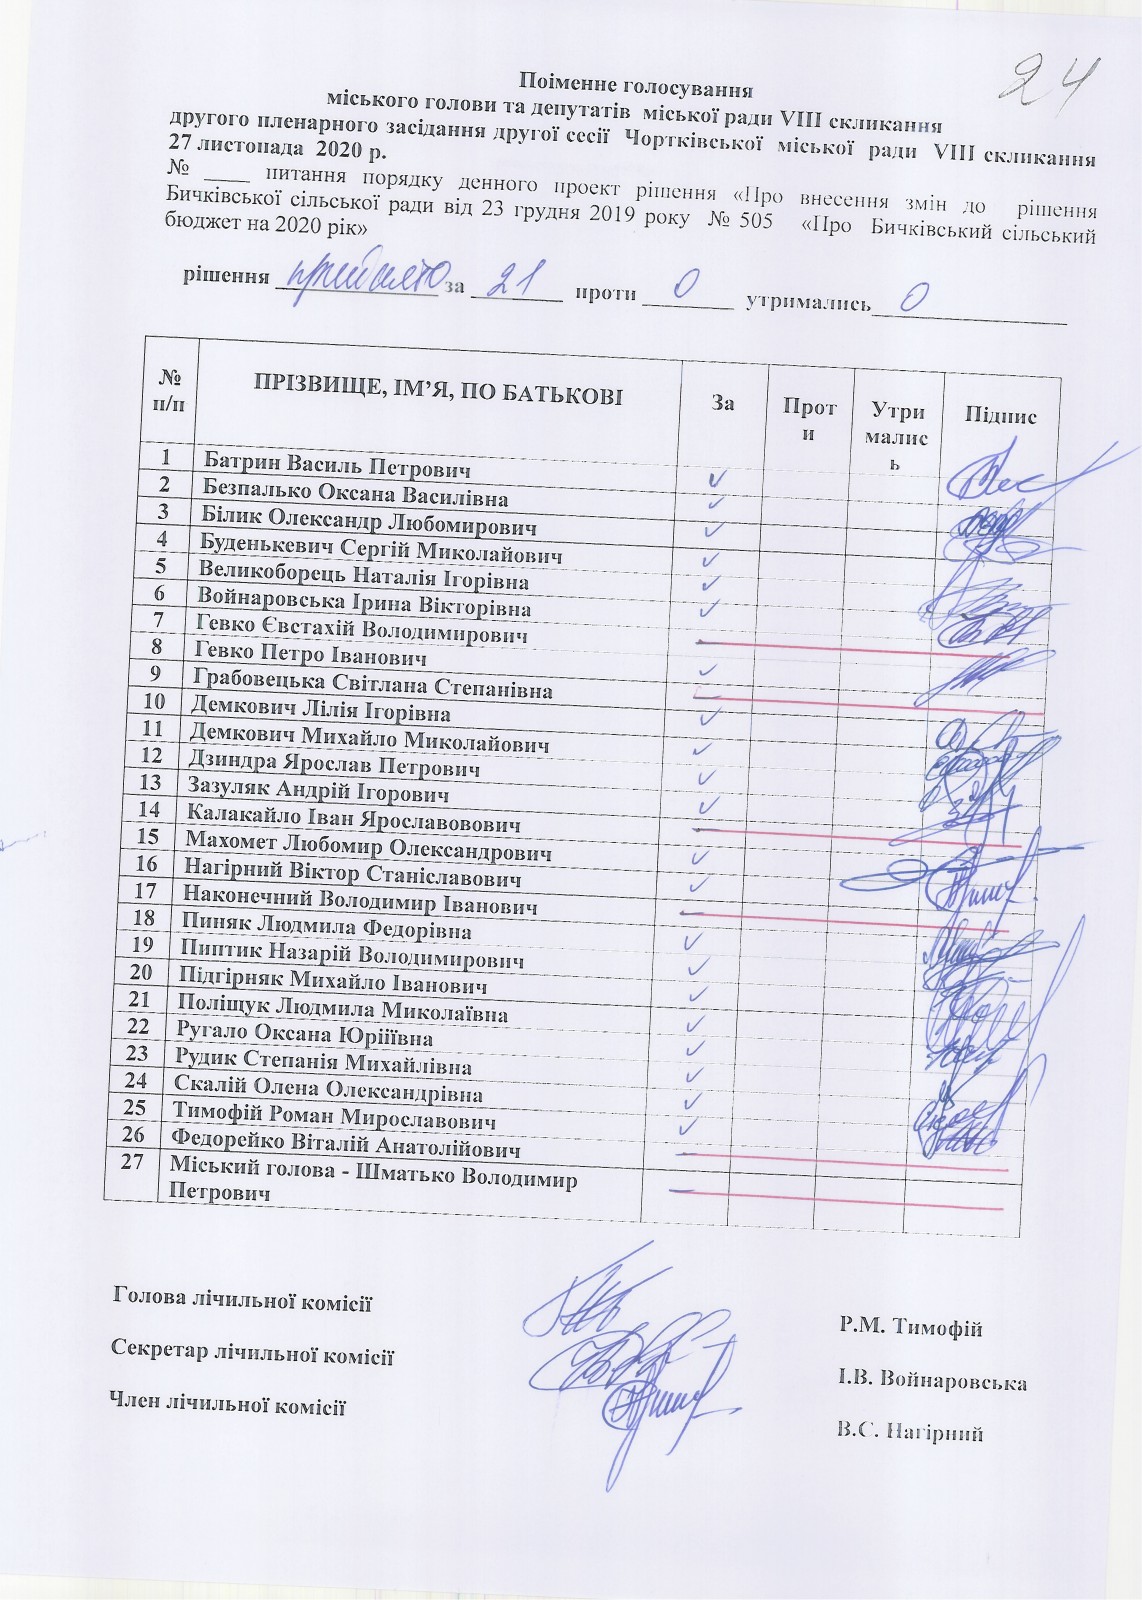 24
Поіменне голосування
міського голови та депутатів міської ради VIII скликання
другого пленарного засідання другої сесії Чортківської міської ради VIII скликання
27 листопада 2020 р.
№ ____ питання порядку денного проект рішення «Про внесення змін до рішення
Бичківської сільської ради від 23 грудня 2019 року № 505 «Про Бичківський сільський
бюджет на 2020 рік»
рішення прийнято за 21 проти 0 утримались 0
№ п/п ПРІЗВИЩЕ, ІМ’Я, ПО БАТЬКОВІ За Проти Утримались Підпис
1 Батрин Василь Петрович
2 Безпалько Оксана Василівна
3 Білик Олександр Любомирович
4 Буденькевич Сергій Миколайович
5 Великоборець Наталія Ігорівна
6 Войнаровська Ірина Вікторівна
7 Гевко Євстахій Володимирович
8 Гевко Петро Іванович
9 Грабовецька Світлана Степанівна
10 Демкович Лілія Ігорівна
11 Демкович Михайло Миколайович
12 Дзиндра Ярослав Петрович
13 Зазуляк Андрій Ігорович
14 Калакайло Іван Ярославовович
15 Махомет Любомир Олександрович
16 Нагірний Віктор Станіславович
17 Наконечний Володимир Іванович
18 Пиняк Людмила Федорівна
19 Пиптик Назарій Володимирович
20 Підгірняк Михайло Іванович
21 Поліщук Людмила Миколаївна
22 Ругало Оксана Юріїївна
23 Рудик Степанія Михайлівна
24 Скалій Олена Олександрівна
25 Тимофій Роман Мирославович
26 Федорейко Віталій Анатолійович
27 Міський голова - Шматько Володимир
Петрович
Голова лічильної комісії Р.М. Тимофій
Секретар лічильної комісії І.В. Войнаровська
Член лічильної комісії В.С. Нагірний